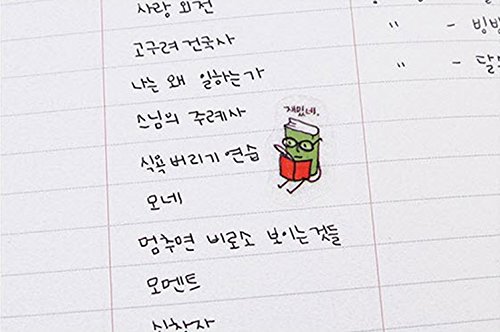 사랑 외전
고구려 건국사 " - 빙빙
나는 왜 일하는가 " - 달
스님의 주례사
재밌네.
식욕버리기 연습
모네
멈추면 비로소 보이는것들
모멘트